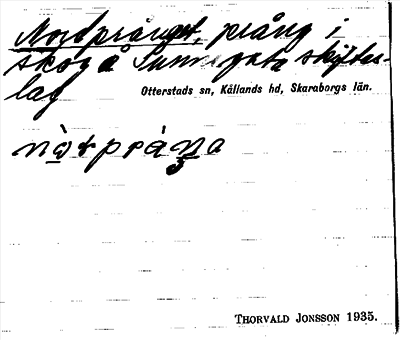 Nordprånget, prång i
skog å Sunnegata skiftes-
lag
Otterstads sn, Kållands hd, Skaraborgs län.
THORVALD JONSSON 1935.